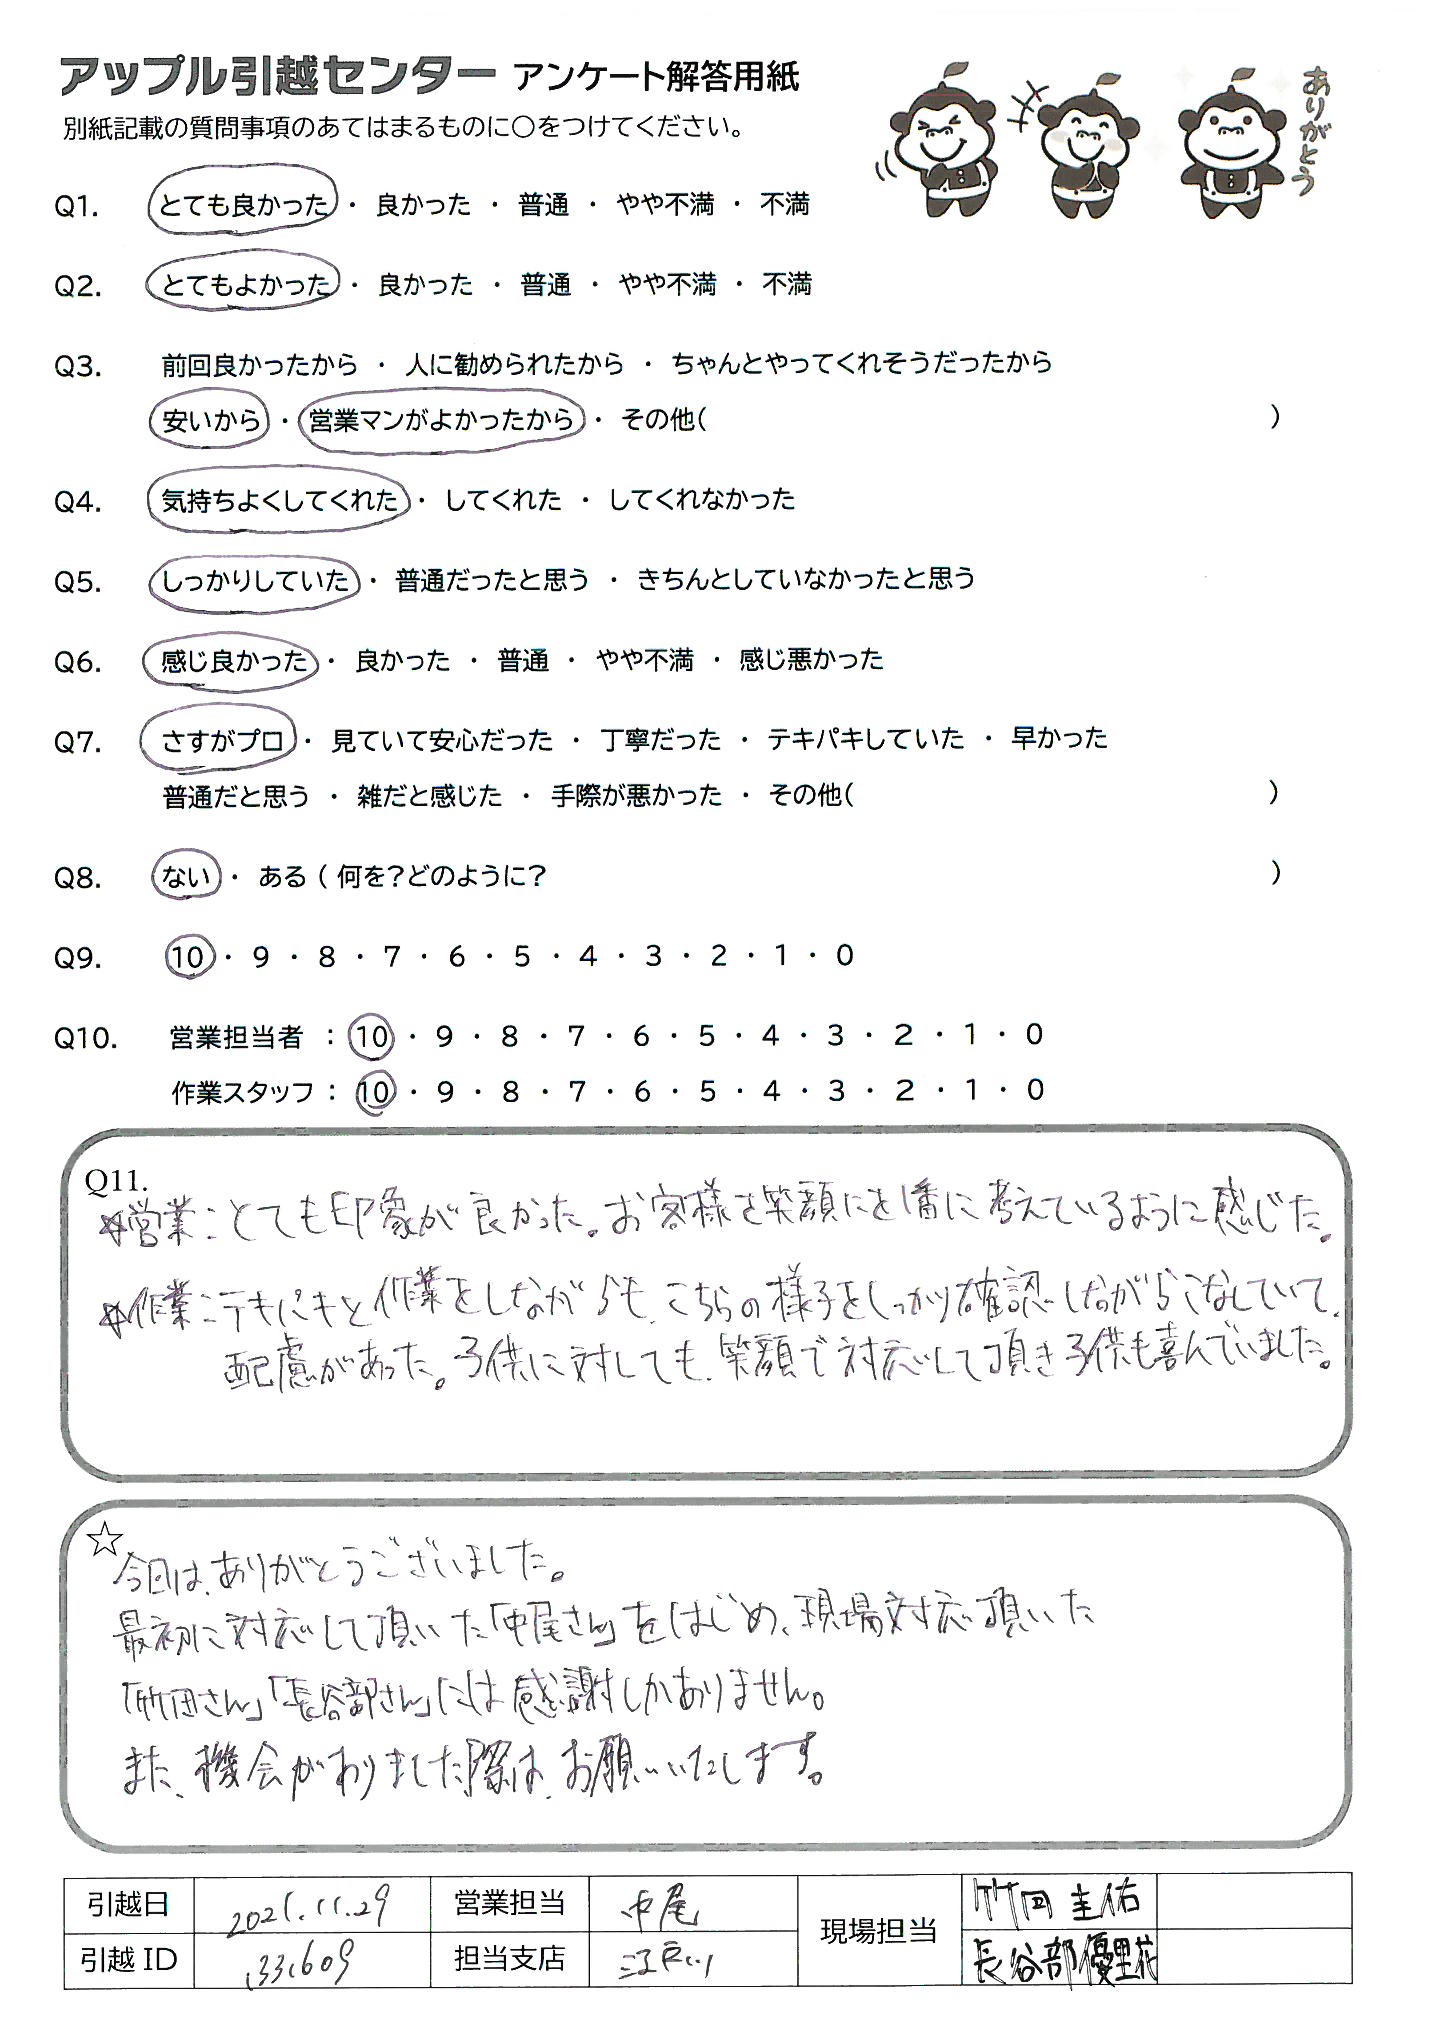 アップル引越センター アンケート解答用紙
別紙記載の質問事項のあてはまるものに○をつけてください。
ありがとう
Q1. とても良かった ・ 良かった ・ 普通 ・ やや不満 ・ 不満
Q2. とてもよかった ・ 良かった ・ 普通 ・ やや不満 ・ 不満
Q3. 前回良かったから ・ 人に勧められたから ・ ちゃんとやってくれそうだったから
安いから ・ 営業マンがよかったから ・ その他( )
Q4. 気持ちよくしてくれた ・ してくれた ・ してくれなかった
Q5. しっかりしていた ・ 普通だったと思う ・ きちんとしていなかったと思う
Q6. 感じ良かった ・ 良かった ・ 普通 ・ やや不満 ・ 感じ悪かった
Q7. さすがプロ ・ 見ていて安心だった ・ 丁寧だった ・ テキパキしていた ・ 早かった
普通だと思う ・ 雑だと感じた ・ 手際が悪かった ・ その他( )
Q8. ない ・ ある ( 何を?どのように? )
Q9. 10 ・ 9 ・ 8 ・ 7 ・ 6 ・ 5 ・ 4 ・ 3 ・ 2 ・ 1 ・ 0
Q10. 営業担当者 : 10 ・ 9 ・ 8 ・ 7 ・ 6 ・ 5 ・ 4 ・ 3 ・ 2 ・ 1 ・ 0
作業スタッフ : 10 ・ 9 ・ 8 ・ 7 ・ 6 ・ 5 ・ 4 ・ 3 ・ 2 ・ 1 ・ 0
Q11.
☆営業:とても印象が良かった。お客様を笑顔にを1番に考えているように感じた。
☆作業:テキパキと作業をしながらも、こちらの様子をしっかり確認しながらこなしていて、
配慮があった。子供に対しても、笑顔で対応して頂き子供も喜んでいました。
☆
今日は、ありがとうございました。
最初に対応して頂いた「中尾さん」をはじめ、現場対応頂いた
「竹田さん」「長谷部さん」には感謝しかありません。
また、機会がありました際は、お願いいたします。
引越日 2021.11.29 営業担当 中尾 現場担当 竹田 圭佑
引越ID 133609 担当支店 江戸川 長谷部優里花